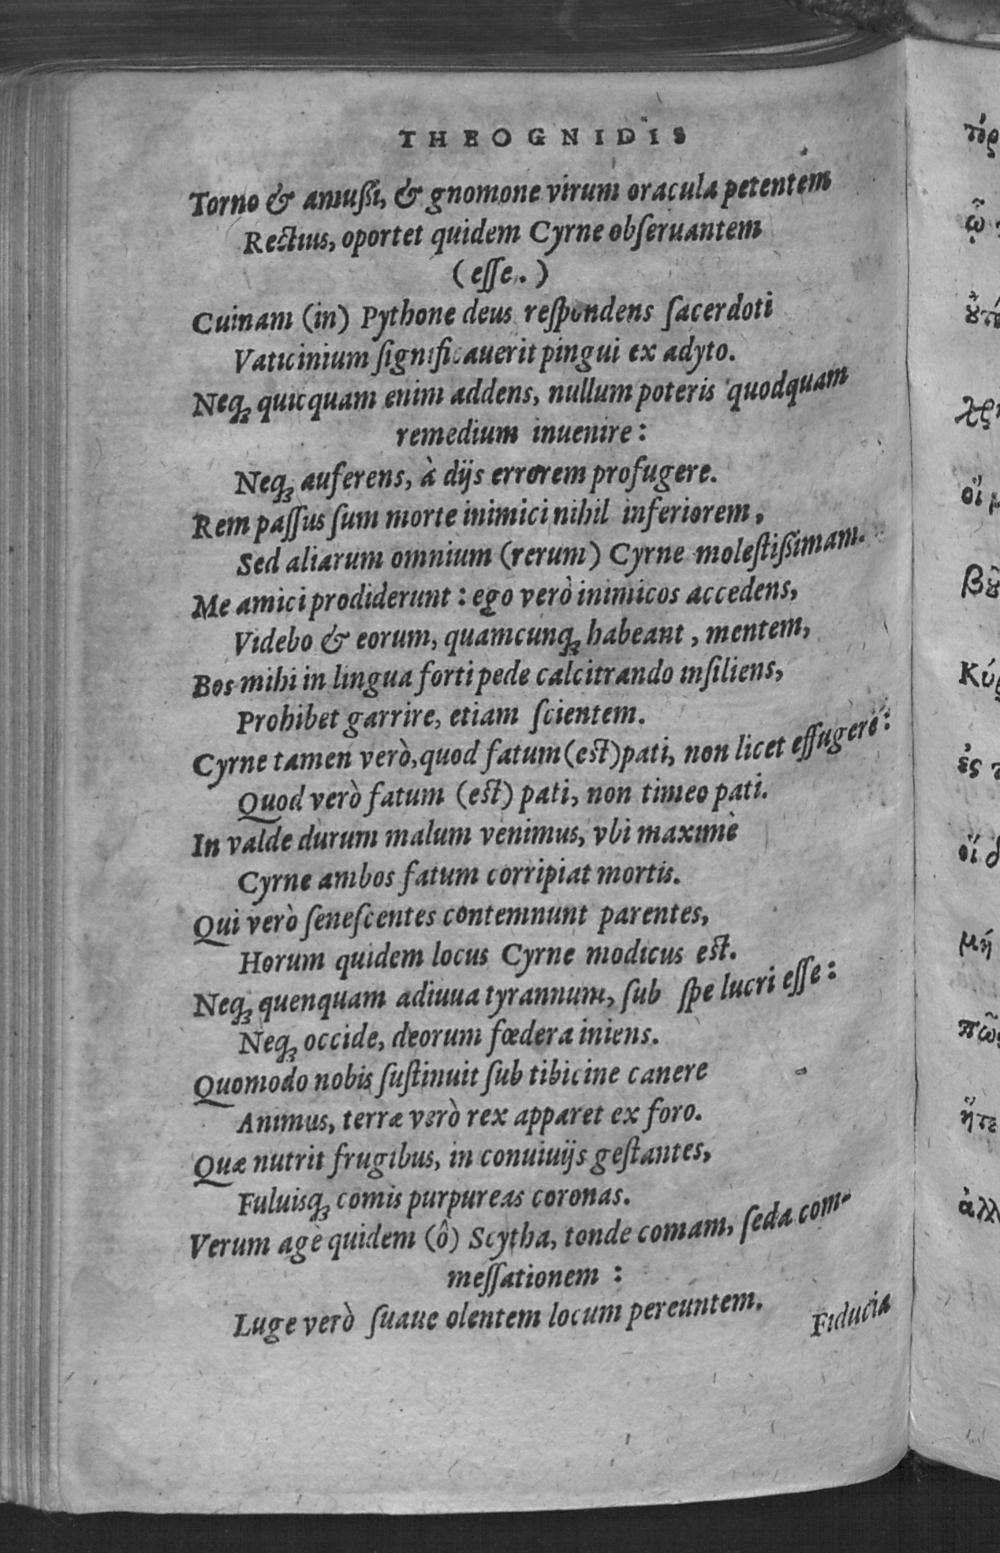 THEOGNIDIS
Torno & amußi, & gnomone virum oracula petentem
Rectius, oportet quidem Cyrne obſeruantem
(eſſe.)
Cuinam (in) Pythone deus reſpondens ſacerdoti
Vaticinium ſignificauerit pingui ex adyto.
Neq; quicquam enim addens, nullum poteris quodquam
remedium inuenire:
Neq; auferens, à dijs errorem profugere.
Rem paſſus ſum morte inimici nihil inferiorem,
Sed aliarum omnium (rerum) Cyrne moleſtißimam.
Me amici prodiderunt: ego verò inimicos accedens,
Videbo & eorum, quamcunq; habeant, mentem,
Bos mihi in lingua forti pede calcitrando inſiliens,
Prohibet garrire, etiam ſcientem.
Cyrne tamen verò, quod fatum (eſt) pati, non licet effugere:
Quod verò fatum (eſt) pati, non timeo pati.
In valde durum malum venimus, vbi maximè
Cyrne ambos fatum corripiat mortis.
Qui verò ſeneſcentes contemnunt parentes,
Horum quidem locus Cyrne modicus eſt.
Neq; quenquam adiuua tyrannum, ſub ſpe lucri eſſe:
Neq; occide, deorum fœdera iniens.
Quomodo nobis ſuſtinuit ſub tibicine canere
Animus, terræ verò rex apparet ex foro.
Quæ nutrit frugibus, in conuiuijs geſtantes,
Fuluisq; comis purpureas coronas.
Verum age quidem (ô) Scytha, tonde comam, ſeda com-
meſſationem:
Luge verò ſuaue olentem locum pereuntem.
Fiducia
τόρ
ᾧ
χρ
οἵ μ
Κύρ
ἐς τ
οἵ δ
μή
πῶς
ἥτε
ἀλλ